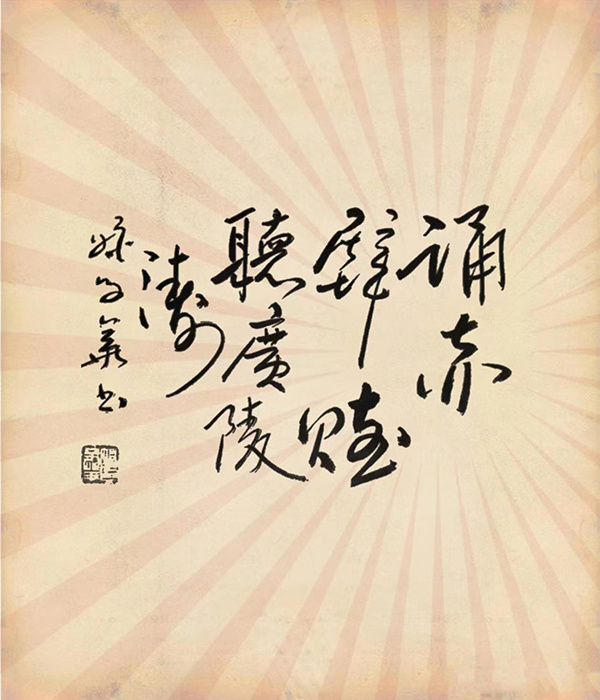 誦赤
壁賦
聽廣陵
濤
書